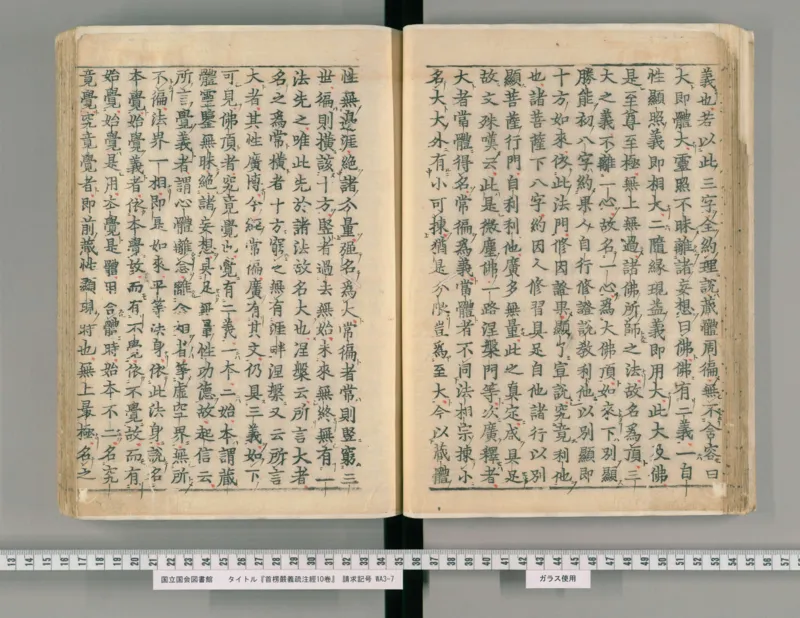 義也若以此三字全約理說蔵體周徧無不含容曰
大即體大靈照不昧離諸妄想曰佛佛有二義一自
性顯照義即相大二隨緣現益義即用大此大及佛
是至尊至極無上無過諸佛所師之法故名為頂三
大之義不離一心故名一心為大佛頂如來下別顯
勝能初八字約果人自行修證說教利他以別顯即
十方如來依此法門修因證果顯了宣說究竟利他
也諸菩薩下八字約因人修習具足自他諸行以別
顯菩薩行門自利利他廣多無量此之真定咸具足
故文殊嘆云此是微塵佛一路涅槃門等次廣釋者
大者當體得名常徧為義當體者不同法相宗揀小
名大大外有小可揀猶是分限豈為至大今以蔵體
性無邊涯絕諸分量強名為大常徧者常則豎窮三
世徧則橫該十方豎者過去無始未來無終無有一
法先之唯此先於諸法故名大也涅槃云所言大者
名之為常橫者十方窮之無有涯畔涅槃又云所言
大者其性廣博今經常徧廣有其文仍具三義如下
可見佛頂者究竟覺也覺有二義一本二始本謂蔵
體靈鑒無昧絕諸妄想具足無量性功德故起信云
所言覺義者謂心體離念離念相者等虛空界無所
不徧法界一相即是如來平等法身依此法身說名
本覺始覺義者依本覺故而有不覺依不覺故而有
始覺始覺是用本覺是體用合體時始本不二名究
竟覺究竟覺者即前蔵性顯現也無上最極名之
13 14 15 16 17 18 19 20 21 22 23 24 25 26 27 28 29 30 31 32 33 34 35 36 37 38 39 40 41 42 43 44 45 46 47 48 49 50 51 52 53 54 55 56 57
国立国会図書館 タイトル『首楞嚴義疏注經10巻』 請求記号 WA3-7
ガラス使用